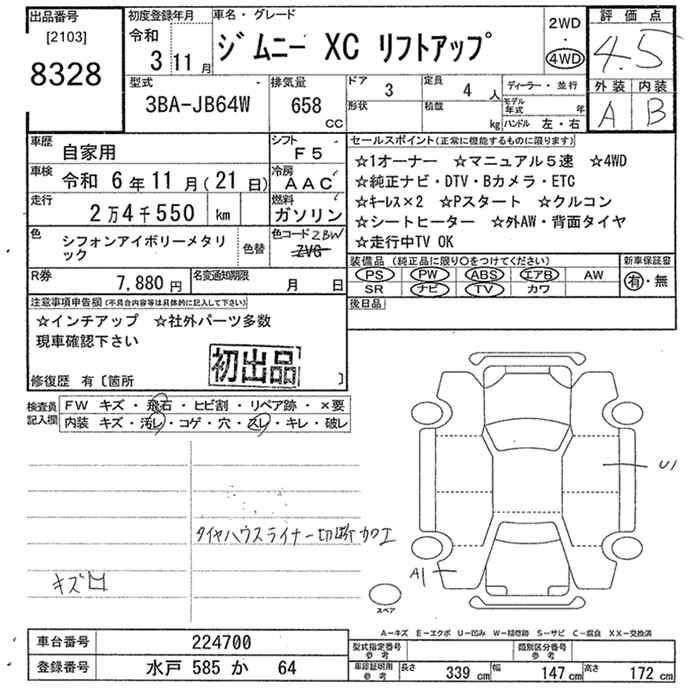 出品番号
[2103]
8328
初度登録年月
令和
3 11月
車名・グレード
ジムニー XC リフトアップ
2WD
・
4WD
評価点
4.5
外装 内装
A B
型式
3BA-JB64W
排気量
658
CC
ドア
3
定員
4 人
形状
積載
kg
ディーラー・並行
モデル年式 年
ハンドル 左・右
車歴
自家用
シフト
F5
車検
令和 6年11月(21日)
冷房
AAC
走行
2万4千550 km
燃料
ガソリン
色
シフォンアイボリーメタリック
色替
色コード ZBW
ZVG
R券
7,880円
名変通知期限
月 日
セールスポイント(正常に機能するものに限ります)
☆1オーナー ☆マニュアル5速 ☆4WD
☆純正ナビ・DTV・Bカメラ・ETC
☆キーレス×2 ☆Pスタート ☆クルコン
☆シートヒーター ☆外AW・背面タイヤ
☆走行中TV OK
装備品(純正品に限り○をつけてください)
PS PW ABS エアB AW
SR ナビ TV カワ
新車保証書
有・無
後日品
注意事項申告欄(不具合内容等は具体的に記入して下さい)
☆インチアップ ☆社外パーツ多数
現車確認下さい
初出品
修復歴 有〔箇所 〕
検査員記入欄
FW キズ・飛石・ヒビ割・リペア跡・×要
内装 キズ・汚レ・コゲ・穴・スレ・キレ・破レ
タイヤハウスライナー切断加工
キズ凹
U1
A1
スペア
A-キズ E-エクボ U-凹み W-補修跡 S-サビ C-腐食 XX-交換済
車台番号
224700
登録番号
水戸 585 か 64
型式指定番号
参考
類別区分番号
参考
車庫証明用
参考
長さ 339 cm
幅 147 cm
高さ 172 cm